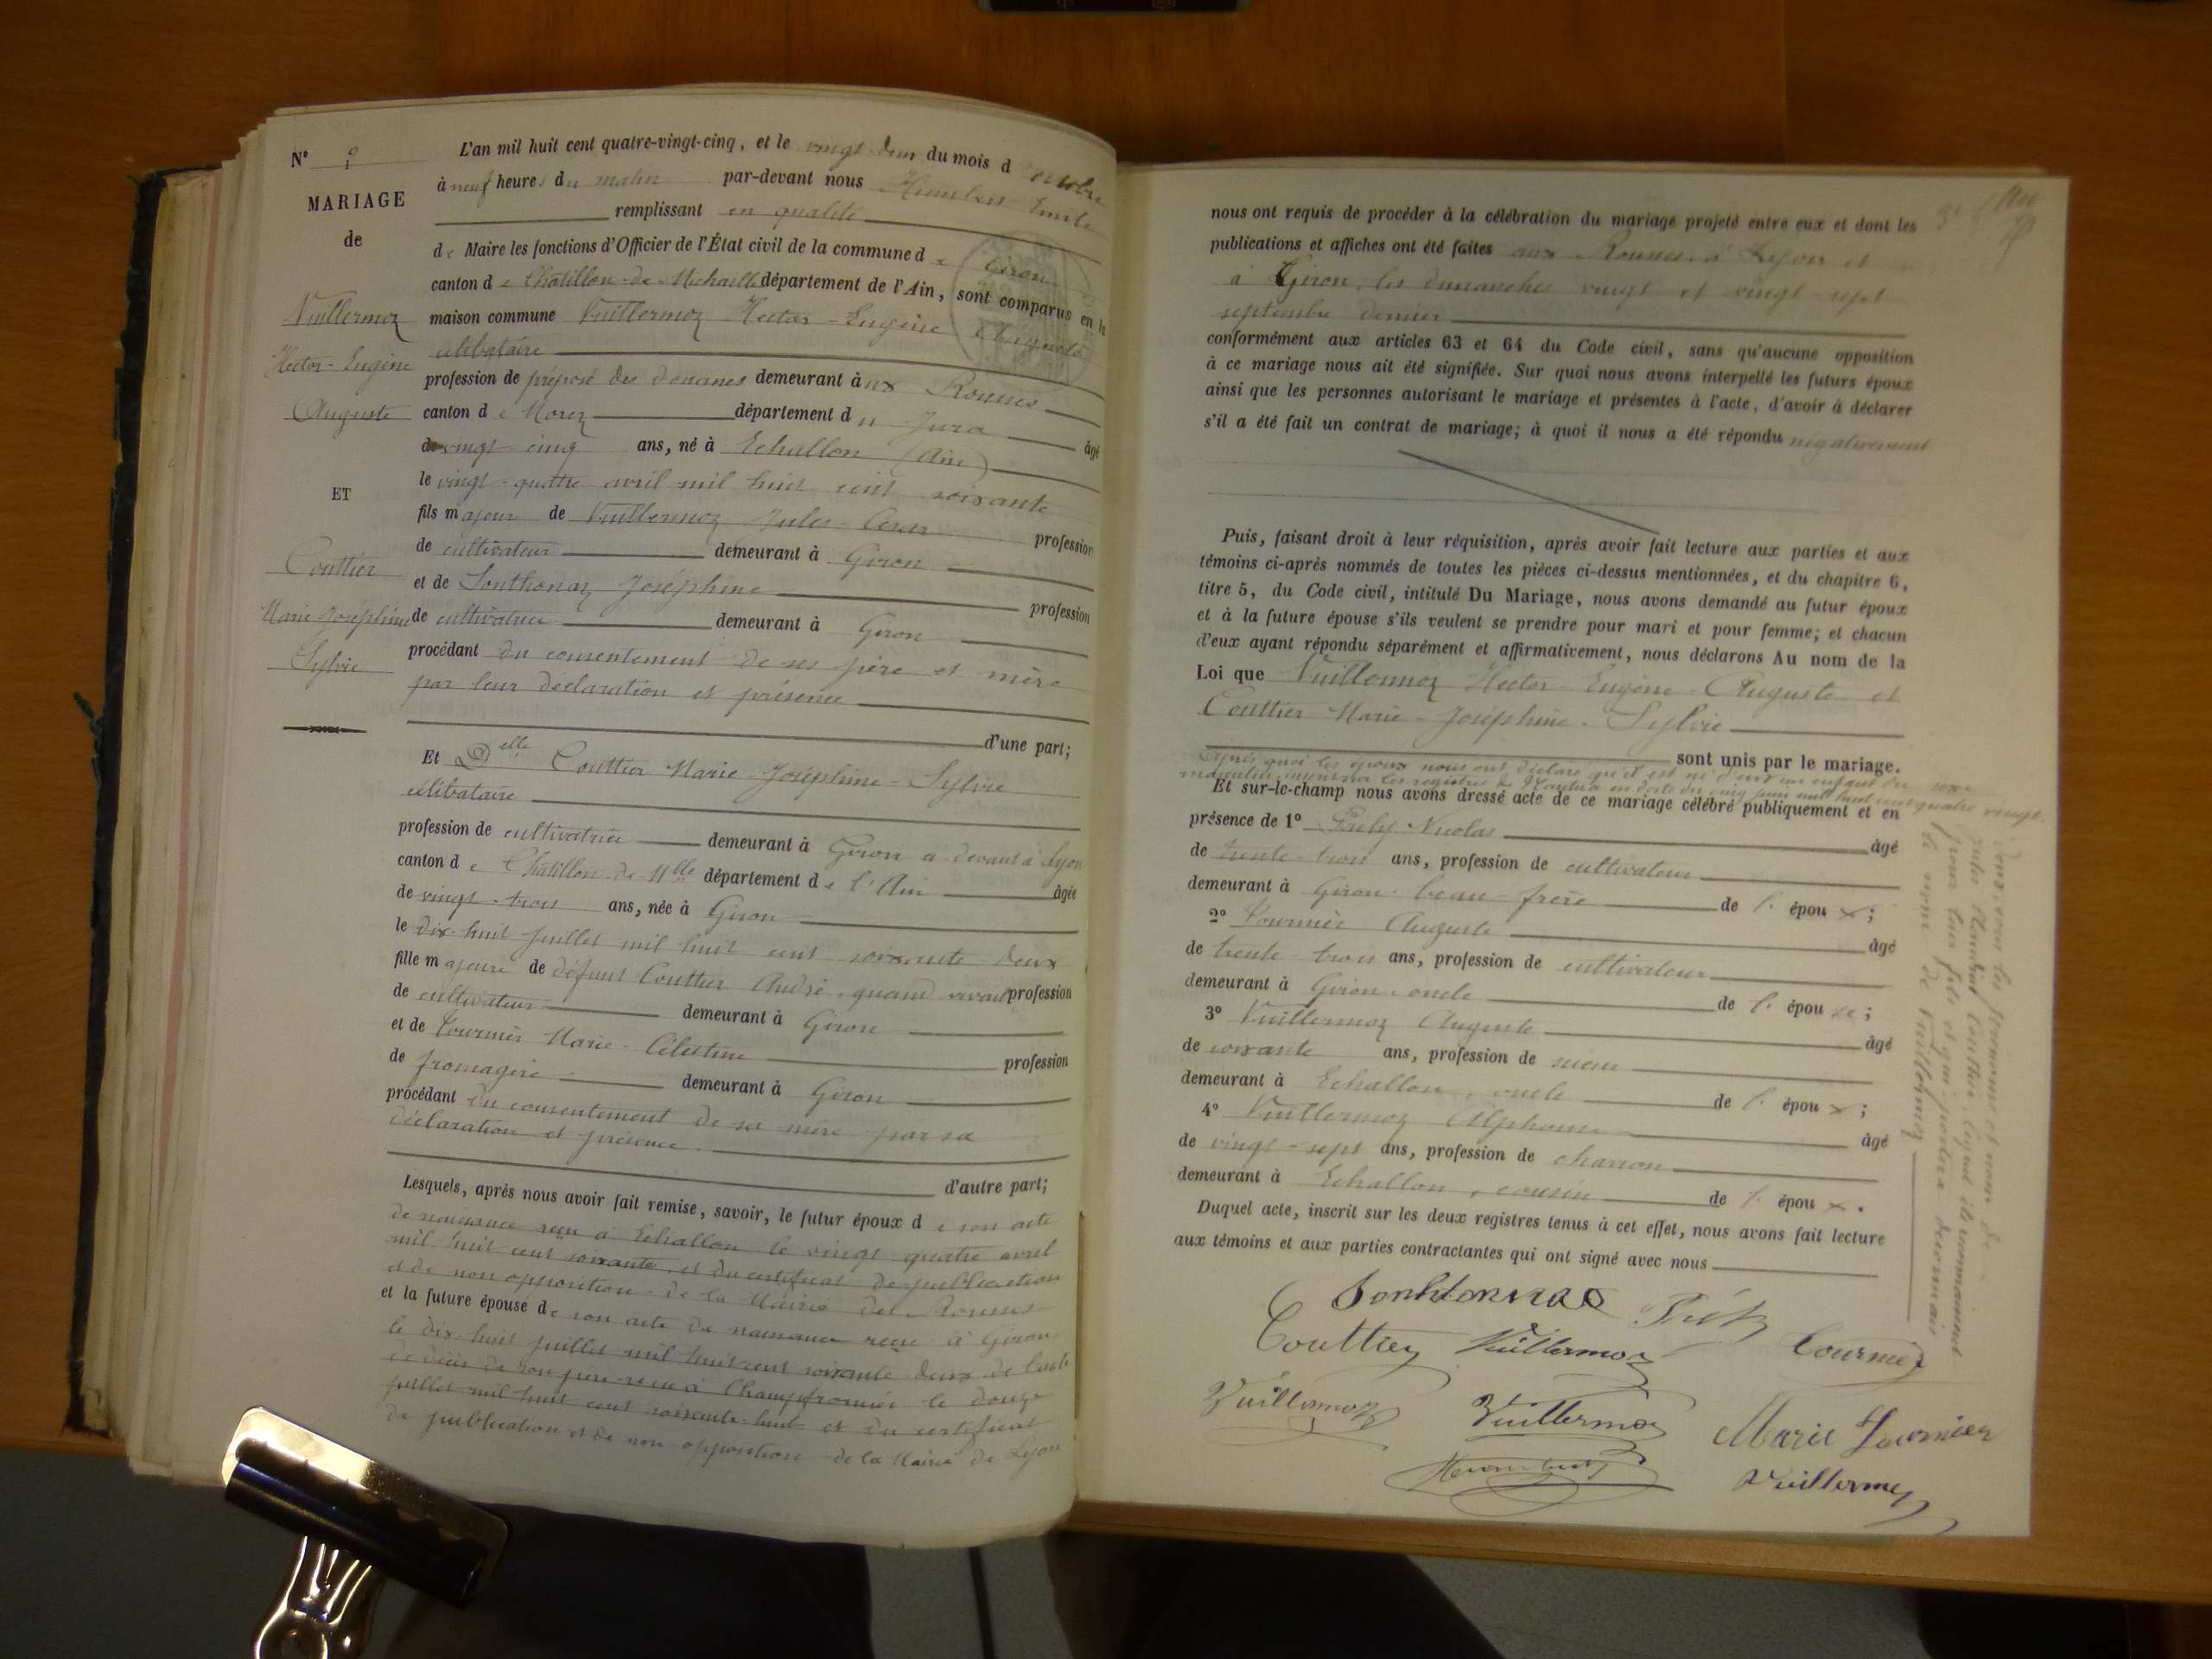 N° 1
MARIAGE
de
Vuillermoz
Hector-Eugène
Auguste
ET
Couttier
Marie-Joséphine
Sylvie
L'an mil huit cent quatre-vingt-cinq, et le vingt-deux du mois d'octobre
à neuf heures du matin par-devant nous Humbert Emile
remplissant en qualité
de Maire les fonctions d'Officier de l'État civil de la commune de Giron
canton de Châtillon-de-Michaille département de l'Ain, sont comparus en la
maison commune Vuillermoz Hector-Eugène Auguste
célibataire
profession de préposé des douanes demeurant aux Rousses
canton de Morez département du Jura âgé
de vingt cinq ans, né à Echallon (Ain)
le vingt-quatre avril mil huit cent soixante
fils majeur de Vuillermoz Jules-César profession
de cultivateur demeurant à Giron
et de Sonthonnaz Joséphine profession
de cultivatrice demeurant à Giron
procédant du consentement de ses père et mère
par leur déclaration et présence
d'une part;
Et Delle Couttier Marie-Joséphine-Sylvie
célibataire
profession de cultivatrice demeurant à Giron a devant à Lyon
canton de Châtillon-de-Mlle département de l'Ain âgée
de vingt-trois ans, née à Giron
le dix-huit juillet mil huit cent soixante deux
fille majeure de défunt Couttier André, quand vivait profession
de cultivateur demeurant à Giron
et de Tournier Marie-Célestine profession
de fromagère demeurant à Giron
procédant du consentement de sa mère par sa
déclaration et présence
d'autre part;
Lesquels, après nous avoir fait remise, savoir, le futur époux de son acte
de naissance reçu à Echallon le vingt quatre avril
mil huit cent soixante et du certificat de publication
et de non opposition de la Mairie des Rousses
et la future épouse de son acte de naissance reçu à Giron
le dix-huit juillet mil huit cent soixante deux de l'acte
de décès de son père reçu à Champfromier le douze
juillet mil huit cent soixante-huit et du certificat
de publication et de non-opposition de la Mairie de Lyon
nous ont requis de procéder à la célébration du mariage projeté entre eux et dont les
publications et affiches ont été faites aux Rousses à Lyon et
à Giron, les dimanches vingt et vingt-sept
septembre dernier
conformément aux articles 63 et 64 du Code civil, sans qu'aucune opposition
à ce mariage nous ait été signifiée. Sur quoi nous avons interpellé les futurs époux
ainsi que les personnes autorisant le mariage et présentes à l'acte, d'avoir à déclarer
s'il a été fait un contrat de mariage; à quoi il nous a été répondu négativement
Puis, faisant droit à leur réquisition, après avoir fait lecture aux parties et aux
témoins ci-après nommés de toutes les pièces ci-dessus mentionnées, et du chapitre 6,
titre 5, du Code civil, intitulé Du Mariage, nous avons demandé au futur époux
et à la future épouse s'ils veulent se prendre pour mari et pour femme; et chacun
d'eux ayant répondu séparément et affirmativement, nous déclarons Au nom de la
Loi que Vuillermoz Hector-Eugène-Auguste et
Couttier Marie-Joséphine-Sylvie
sont unis par le mariage.
Après quoi les époux nous ont déclaré qu'il est né d'eux un enfant du sexe
masculin, inscrit sur les registres de Nantua en date du cinq juin mil huit cent quatre vingt
deux, sous les prénoms et nom de
Jules Couttier, lequel ils reconnaissent
pour leur fils et qui portera désormais
le nom de Vuillermoz
Et sur-le-champ nous avons dressé acte de ce mariage célébré publiquement et en
présence de 1° Nicolas âgé
de trente-trois ans, profession de cultivateur
demeurant à Giron beau-frère de l'époux;
2° Tournier Auguste âgé
de trente-trois ans, profession de cultivateur
demeurant à Giron, oncle de l'épouse;
3° Vuillermoz Auguste âgé
de soixante ans, profession de
demeurant à Echallon, oncle de l'époux;
4° Vuillermoz Alphonse âgé
de vingt-sept ans, profession de charron
demeurant à Echallon, cousin de l'époux.
Duquel acte, inscrit sur les deux registres tenus à cet effet, nous avons fait lecture
aux témoins et aux parties contractantes qui ont signé avec nous
Sonthonnax
Couttier Vuillermoz Tournier
Vuillermoz Vuillermoz Marie Tournier
Humbert Vuillermoz